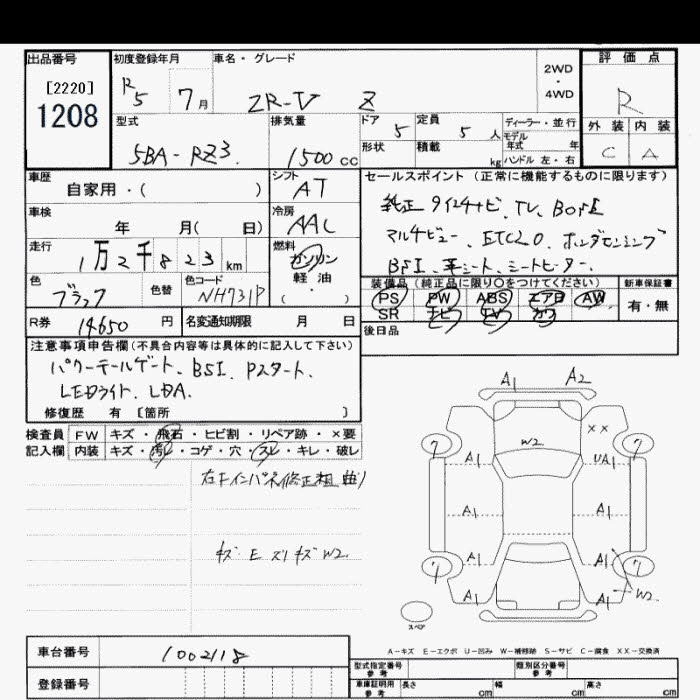 出品番号 初度登録年月 車名・グレード 2WD・4WD 評価点
[2220]
1208
R5 7月 ZR-V Z R
型式 排気量 ドア 5 定員 5人 ディーラー・並行 外装 内装
5BA-RZ3 1500cc 形状 積載 kg モデル年式 年 C A
ハンドル 左・右
車歴 シフト セールスポイント (正常に機能するものに限ります)
自家用・( ) AT
車検 冷房 純正9インチナビ、TV、Bカメラ
年 月( 日) AAC マルチビュー、ETC2.0、ホンダセンシング
走行 燃料 BSI、革シート、シートヒーター、
1万2千823km ガソリン
軽油
( ・ )
色 色替 色コード 装備品 (純正品に限り〇をつけてください) 新車保証書
ブラック NH731P PS PW ABS エアB AW 有・無
SR ナビ TV カワ
R券 14650円 名変通知期限 月 日 後日品
注意事項申告欄(不具合内容等は具体的に記入して下さい)
パワーテールゲート、BSI、Pスタート、
LEDライト、LDA、
修復歴 有 [箇所 ]
検査員 FW キズ・飛石・ヒビ割・リペア跡・×要
記入欄 内装 キズ・汚レ・コゲ・穴・スレ・キレ・破レ
右Fインパネ修正粗 曲り
キズ E ズリキズ W2
A1 A2
W2 XX
7 7
A1 UA1
A1 A1
A1 A1
7 7
A1 A1 W2
スペア
A-キズ E-エクボ U-凹み W-補修跡 S-サビ C-腐食 XX-交換済
車台番号 1002118
登録番号
型式指定番号 参考 類別区分番号 参考
車庫証明用 参考 長さ cm 幅 cm 高さ cm